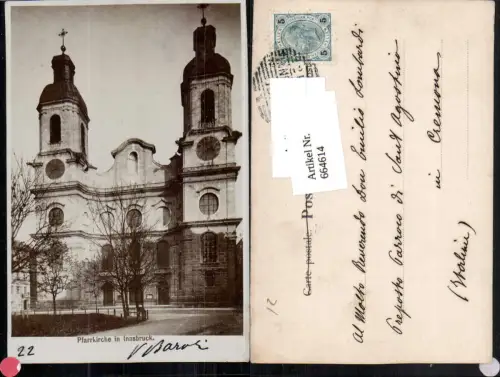 Pfarrkirche in Innsbruck.
22
V Baroli
5 5
5 5
Artikel Nr.
664614
Carte postale
Pos
Al Molto Reverendo Don Emilio Lombardi
Preposto Parroco di Sant'Agostino
in Cremona
(Italia)
12